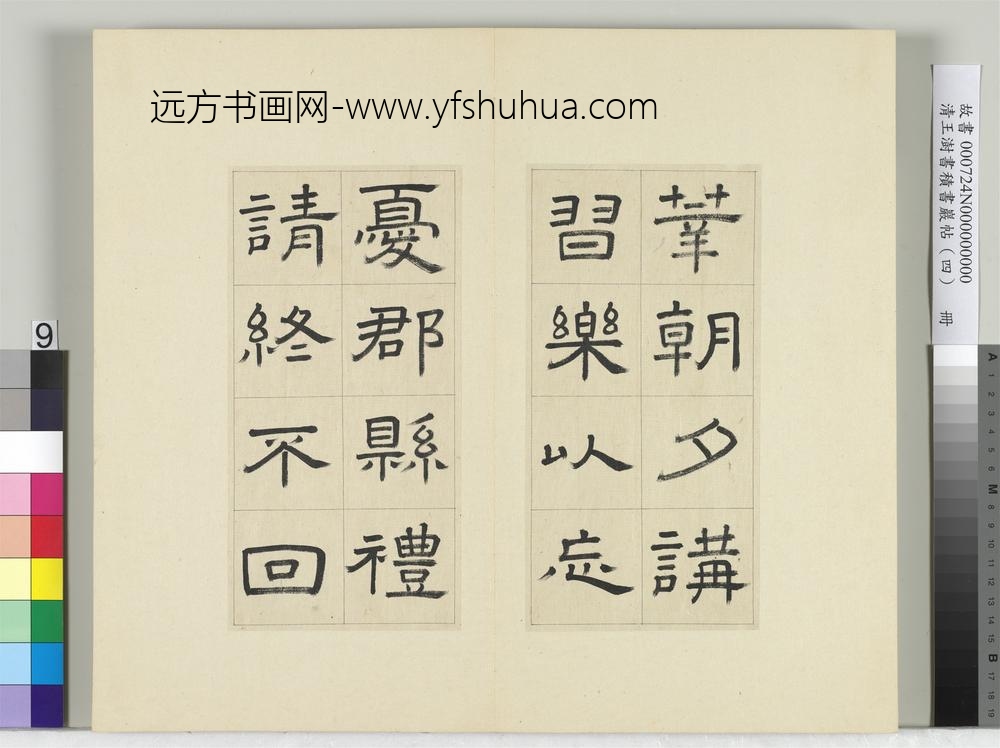 远方书画网-www.yfshuhua.com
莘朝夕講
習樂以忘
憂郡縣禮
請終不回
故書 000724N000000000
清王澍書積書巖帖(四) 冊
9
A 1 2 3 4 5 6 M 8 9 10 11 12 13 14 15 B 17 18 19